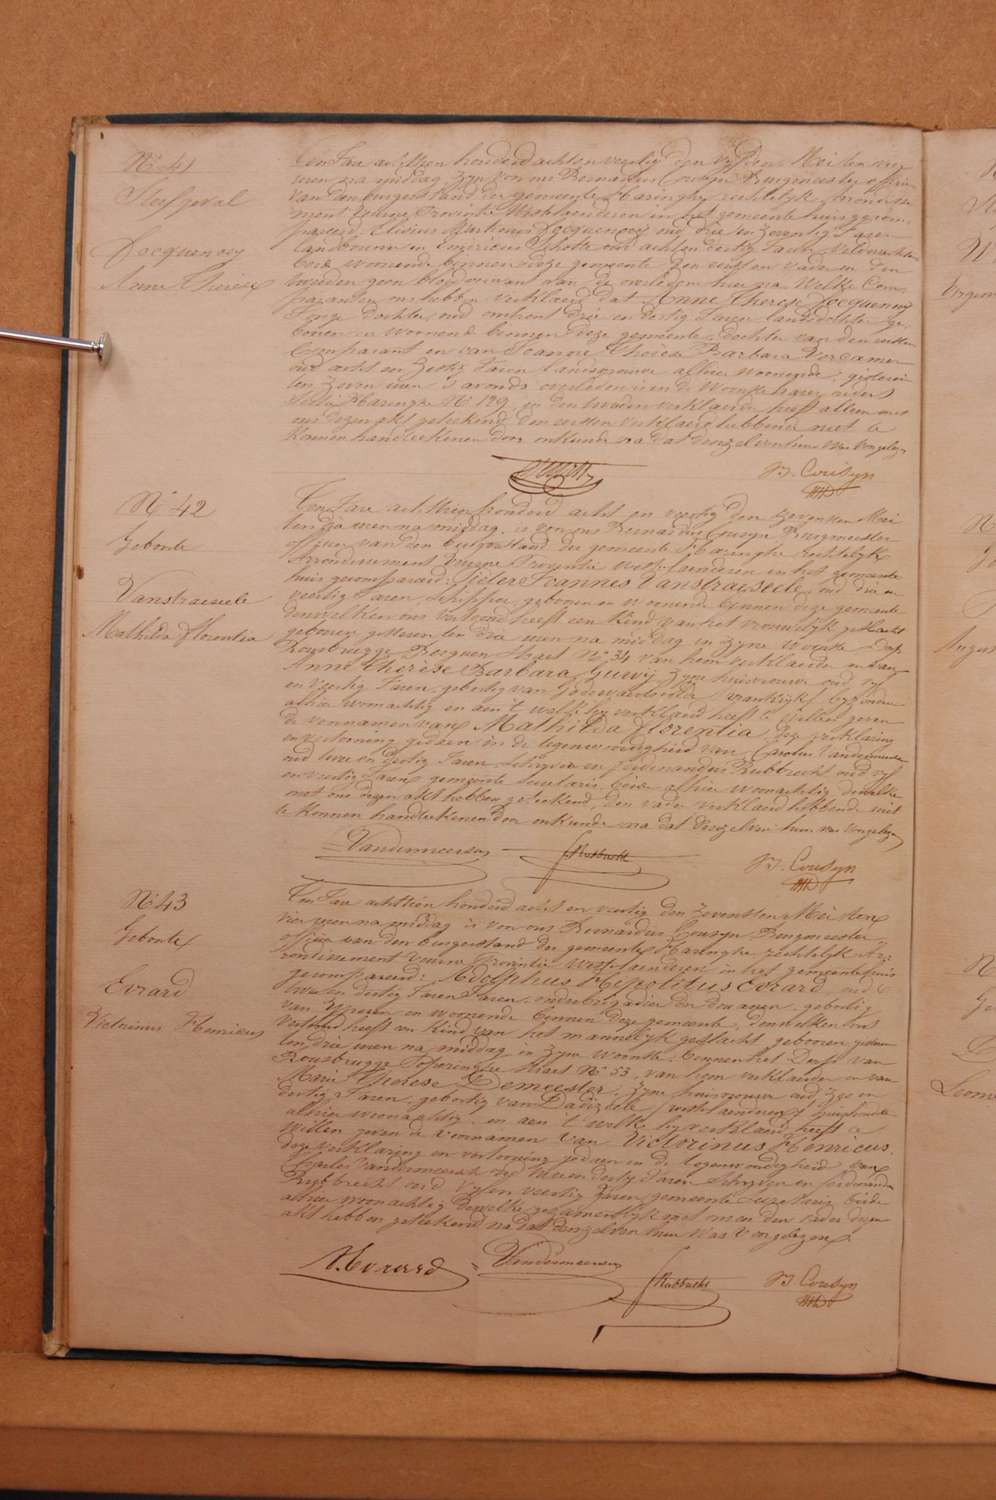 N° 41
Sterfgeval
Jocquenoy
Anne Therese
Ten Jare achttien honderd acht en veertig den vyfden Mei ten vier
uren na middag zyn voor ons Bernardus Cousyn Burgmeester officier
van den burgerstand der gemeente Haringhe rechtelyk arrondisse
ment Veurne Provintie Westvlaenderen in het gemeente huis gecom
pareerd, Livinus Marcus Jocquenoy oud drie en zeventig Jaren
landsman en Emericus oud acht en dertig Jaren Veldwachter
beide woonende binnen deze gemeente den eersten vader en den
tweeden geen bloedverwant van de overleden hier na. Welke Com
paranten ons hebben verklaerd dat Anne Therese Jocquenoy
Jonge dochter, oud omtrent drie en dertig Jaren landsdochter ge
boren en woonende binnen deze gemeente, dochter van den eersten
Comparant en van Jeanne Theresa Barbara Vercamer
oud acht en zestig Jaren landsvrouw alhier woonende, gisteren
ten zeven uren 's avonds overleden is in de Woonste haers vaders
Haringhe N° 129, en den tweeden verklaerder heeft alleen met
ons dezen akt geteekend, den eersten verklaerd hebbende niet te
konnen handteekenen door onkunde na dat dezelve hun was voorgelezen
B. Cousyn
N° 42
Geboorte
Vanstraeseele
Mathilda Florentia
Ten Jare achttien honderd acht en veertig den zevensten Mei
ten dry uren na middag is voor ons Bernardus Cousyn Burgmeester
officier van den burgerstand der gemeente Haringhe rechtelyk
Arrondissement Veurne Provintie West-vlaenderen in het gemeente
huis gecompareerd: Pieter Joannes Vanstraeseele, oud drie en
veertig Jaren Schipper geboren en woonende binnen deze gemeente
denwelken ons vertoond heeft een kind van het vrouwelyk geslacht
geboren gisteren ten drie uren na middag in zyne woonste dorp
Rousbrugge Bergen straet N° 34 van hem verklaerder en van
Anne Thérèse Barbara Zyne huisvrouwe oud vyf
en veertig Jaren, gebortig van Godewaersvelde (vrankryk) byzondere
alhier woonachtig en aen 't welk hy verklaerd heeft te willen geven
de voornamen van Mathilda Florentia, deze verklaring
en vertooning gedaen in de tegenwoordigheid van Carolus Vandermeersch
oud twee en dertig Jaren Schryver en ferdinandus Rubbrecht oud vyf
en veertig Jaren gemeente secretaris beide alhier woonachtig dewelke
met ons dezen akt hebben geteekend, den vader verklaerd hebbende niet
te konnen handteekenen door onkunde na dat dezelve hun was voorgelezen
Vandermeersch F. Rubbrecht B. Cousyn
N° 43
Geboorte
Evrard
Victorinus Henricus
Ten Jare achttien honderd acht en veertig den zevensten Mei ten
vier uren na middag is voor ons Bernardus Cousyn Burgmeester
officier van den burgerstand der gemeente Haringhe rechtelyk Ar
rondissement Veurne Provintie Westvlaenderen in het gemeentehuis
gecompareerd: Adolphus Hypolitus Evrard, oud
twee en dertig Jaren Jaren, onderbrigadier der douanen, gebortig
van Yperen en woonende binnen deze gemeente, denwelken ons
vertoond heeft een kind van het mannelyk geslacht gebooren gisteren
ten drie uren na middag in zyne woonste, binnen het Dorp van
Rousbrugge Poperinghe straet N° 53, van hem verklaerder en van
Marie Thérèse Demeester, Zyne huisvrouw oud zes en
dertig Jaren, gebortig van Dadizeele (westvlaenderen)
alhier woonachtig, en aen 't welk hy verklaerd heeft te
willen geven de voornamen van Victorinus Henricus.
deze verklaring en vertooning gedaen in de tegenwoordigheid van
Charles Vandermeersch oud twee en dertig Jaren Schryver en ferdinandus
Rubbrecht oud vyf en veertig Jaren gemeente secretaris, beide
alhier woonachtig dewelke gezamentlyk met ons en den vader dezen
akt hebben geteekend na dat dezelve hun was voorgelezen
A. Evrard Vandermeersch F. Rubbrecht B. Cousyn